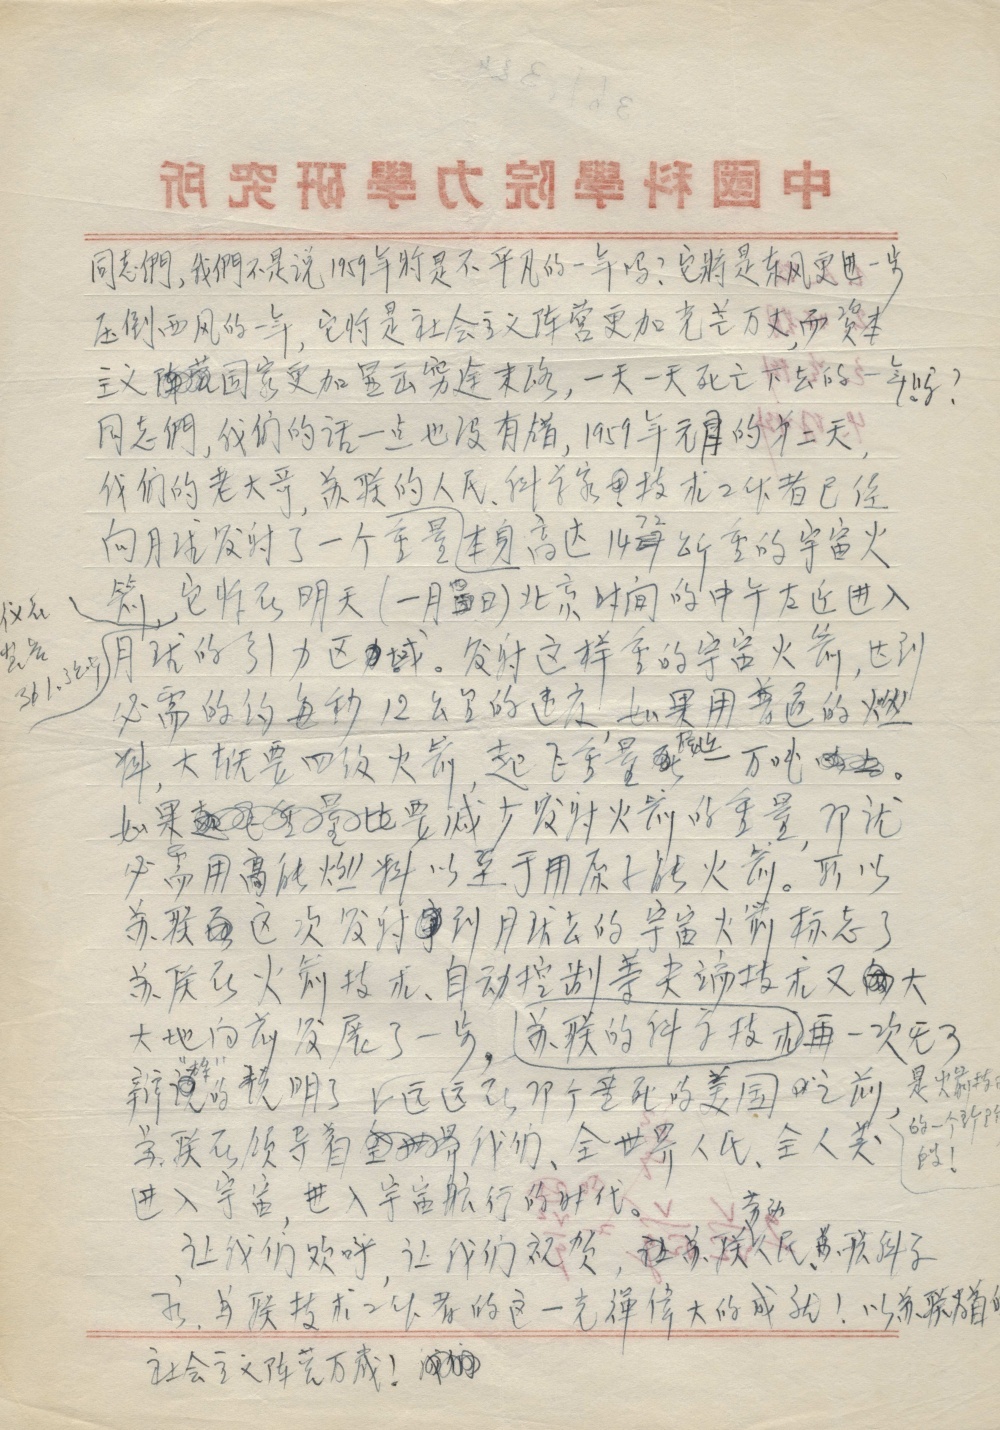 中國科學院力學研究所
同志們,我們不是说1959年將是不平凡的一年吗?它將是东风更进一步
压倒西风的一年,它将是社会主义阵营更加光芒万丈,而资本
主义国家更加显出穷途末路,一天一天死亡下去的一年吗?
同志們,我们的话一点也没有错,1959年元月的第二天,
我们的老大哥,苏联的人民、科学家里技术工作者已经
向月球发射了一个重量本身高达1472公斤重的宇宙火
箭,它将在明天(一月四日)北京时间的中午左近进入
仪器
361.3公斤
月球的引力区域。发射这样重的宇宙火箭,达到
必需的约每秒12公里的速度,如果用普通的燃
料,大概要四级火箭,起飞重量接近一万吨。
如果要减少发射火箭的重量,那就
必需用高能燃料以至于用原子能火箭。所以
苏联这次发射到月球去的宇宙火箭标志了
苏联在火箭技术、自动控制等尖端技术又大
大地向前发展了一步,苏联的科学技术再一次无可
辩的说明了远远在那个垂死的美国之前,
是火箭技术
的一个新阶
段!
苏联在领导着我们、全世界人民、全人类
进入宇宙,进入宇宙航行的时代。
让我们欢呼,让我们祝贺,让苏联劳动人民、苏联科学
家、苏联技术工作者的这一光辉偉大的成就!以苏联为首的
社会主义阵营万岁!